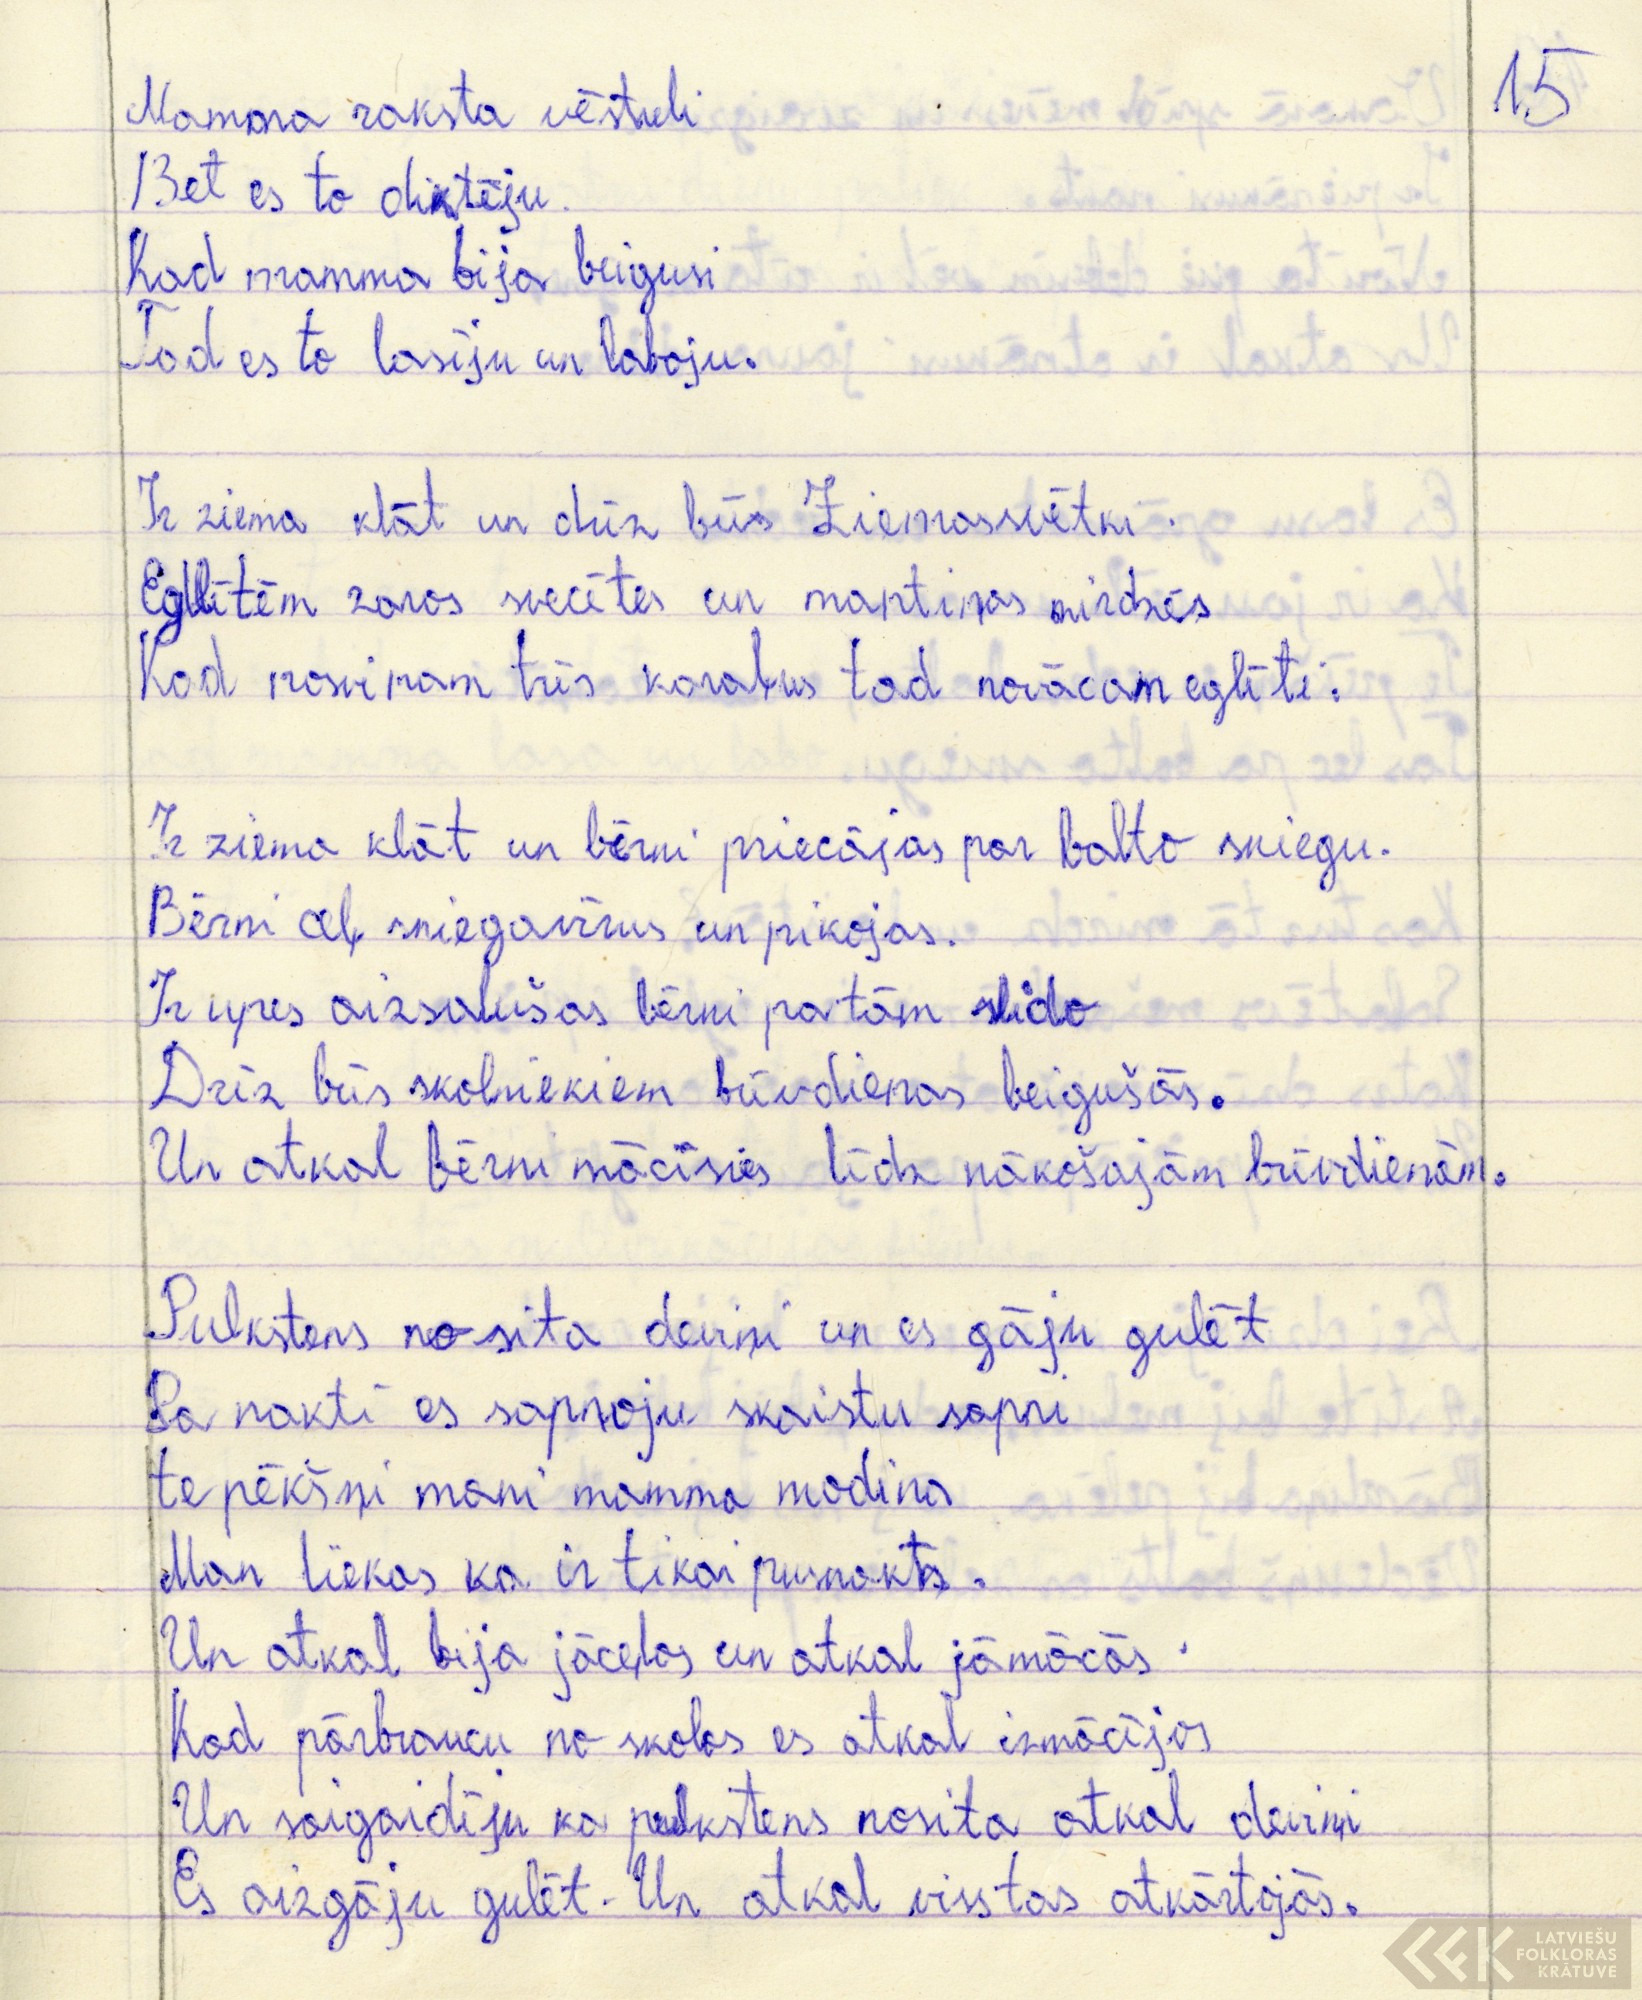 15
Mamma raksta vēstuli
Bet es to diktēju.
Kad mamma bija beigusi
Tad es to lasīju un laboju.
Ir ziema klāt un drīz būs Ziemassvētki.
Eglītēm zaros svecītes un mantiņas mirdzēs
Kad nosvinam trīs karaļus tad novācam eglīti.
Ir ziema klāt un bērni priecājas par balto sniegu.
Bērni ceļ sniegavīrus un pikojas.
Ir upes aizsalušas bērni pa tām slido
Drīz būs skolniekiem brīvdienas beigušās.
Un atkal bērni mācīsies līdz nākošajām brīvdienām.
Pulkstens nosita deviņi un es gāju gulēt
Pa nakti es sapņoju skaistu sapni
te pēkšņi mani mamma modina
Man liekas ka ir tikai pusnakts.
Un atkal bija jāceļas un atkal jāmācās.
Kad pārbraucu no skolas es atkal izmācījos
Un saigaidīju ka pulkstens nosita atkal deviņi
Es aizgāju gulēt. Un atkal viss tas atkārtojās.
LATVIEŠU
FOLKLORAS
KRĀTUVE